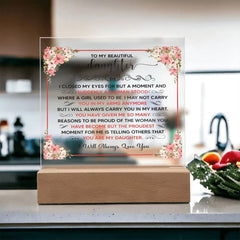 TO MY BEAUTIFUL
daughter
I CLOSED MY EYES FOR BUT A MOMENT AND
SUDDENLY A WOMAN STOOD
WHERE A GIRL USED TO BE. I MAY NOT CARRY
YOU IN MY ARMS ANYMORE
BUT I WILL ALWAYS CARRY YOU IN MY HEART.
YOU HAVE GIVEN ME SO MANY
REASONS TO BE PROUD OF THE WOMAN YOU
HAVE BECOME BUT THE PROUDEST
MOMENT FOR ME IS TELLING OTHERS THAT
YOU ARE MY DAUGHTER.
Will Always Love You